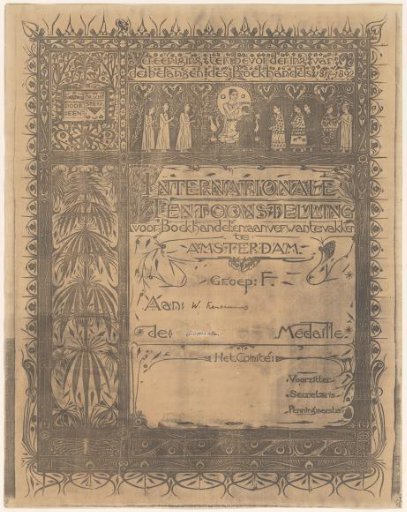 Vereeniging ter bevordering van
de belangen des Boekhandels 1892
DOOR EEN
INTERNATIONALE
TENTOONSTELLING
voor Boekhandel en aanverwante vakken
te
AMSTERDAM.
Groep: F.
Aan: W
de Médaille
Het Comité:
Voorzitter
Secretaris
Penningmeester